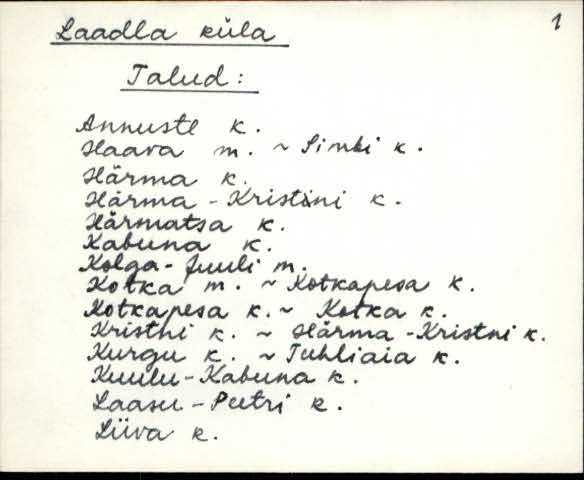 1
Laadla küla
Talud:
Annuste k.
Haava m. ~ Simbi k.
Härma k.
Härma - Kristini k.
Härmatsa k.
Kabuna k.
Kolga - Juuli m.
Kotka m. ~ Kotkapesa k.
Kotkapesa k. ~ Kotka k.
Kristni k. ~ Härma - Kristni k.
Kurgu k. ~ Tuhliaia k.
Kuulu - Kabuna k.
Laasu - Peetri k.
Liiva k.